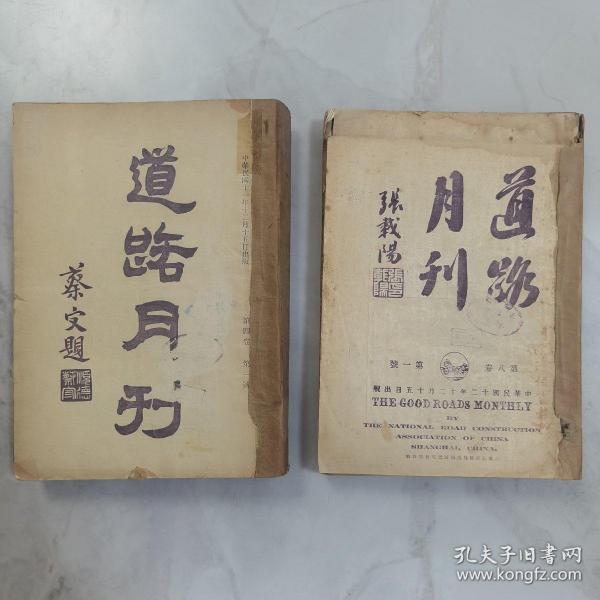 道路月刊
蔡文題
中華民國十一年十二月十五日出版
第四卷 第一號
道路
月刊
張載陽
第八卷 第一號
中華民國十二年十二月十五日出版
THE GOOD ROADS MONTHLY
BY
THE NATIONAL ROAD CONSTRUCTION
ASSOCIATION OF CHINA
SHANGHAI, CHINA.
孔夫子旧书网
www.kongfz.com